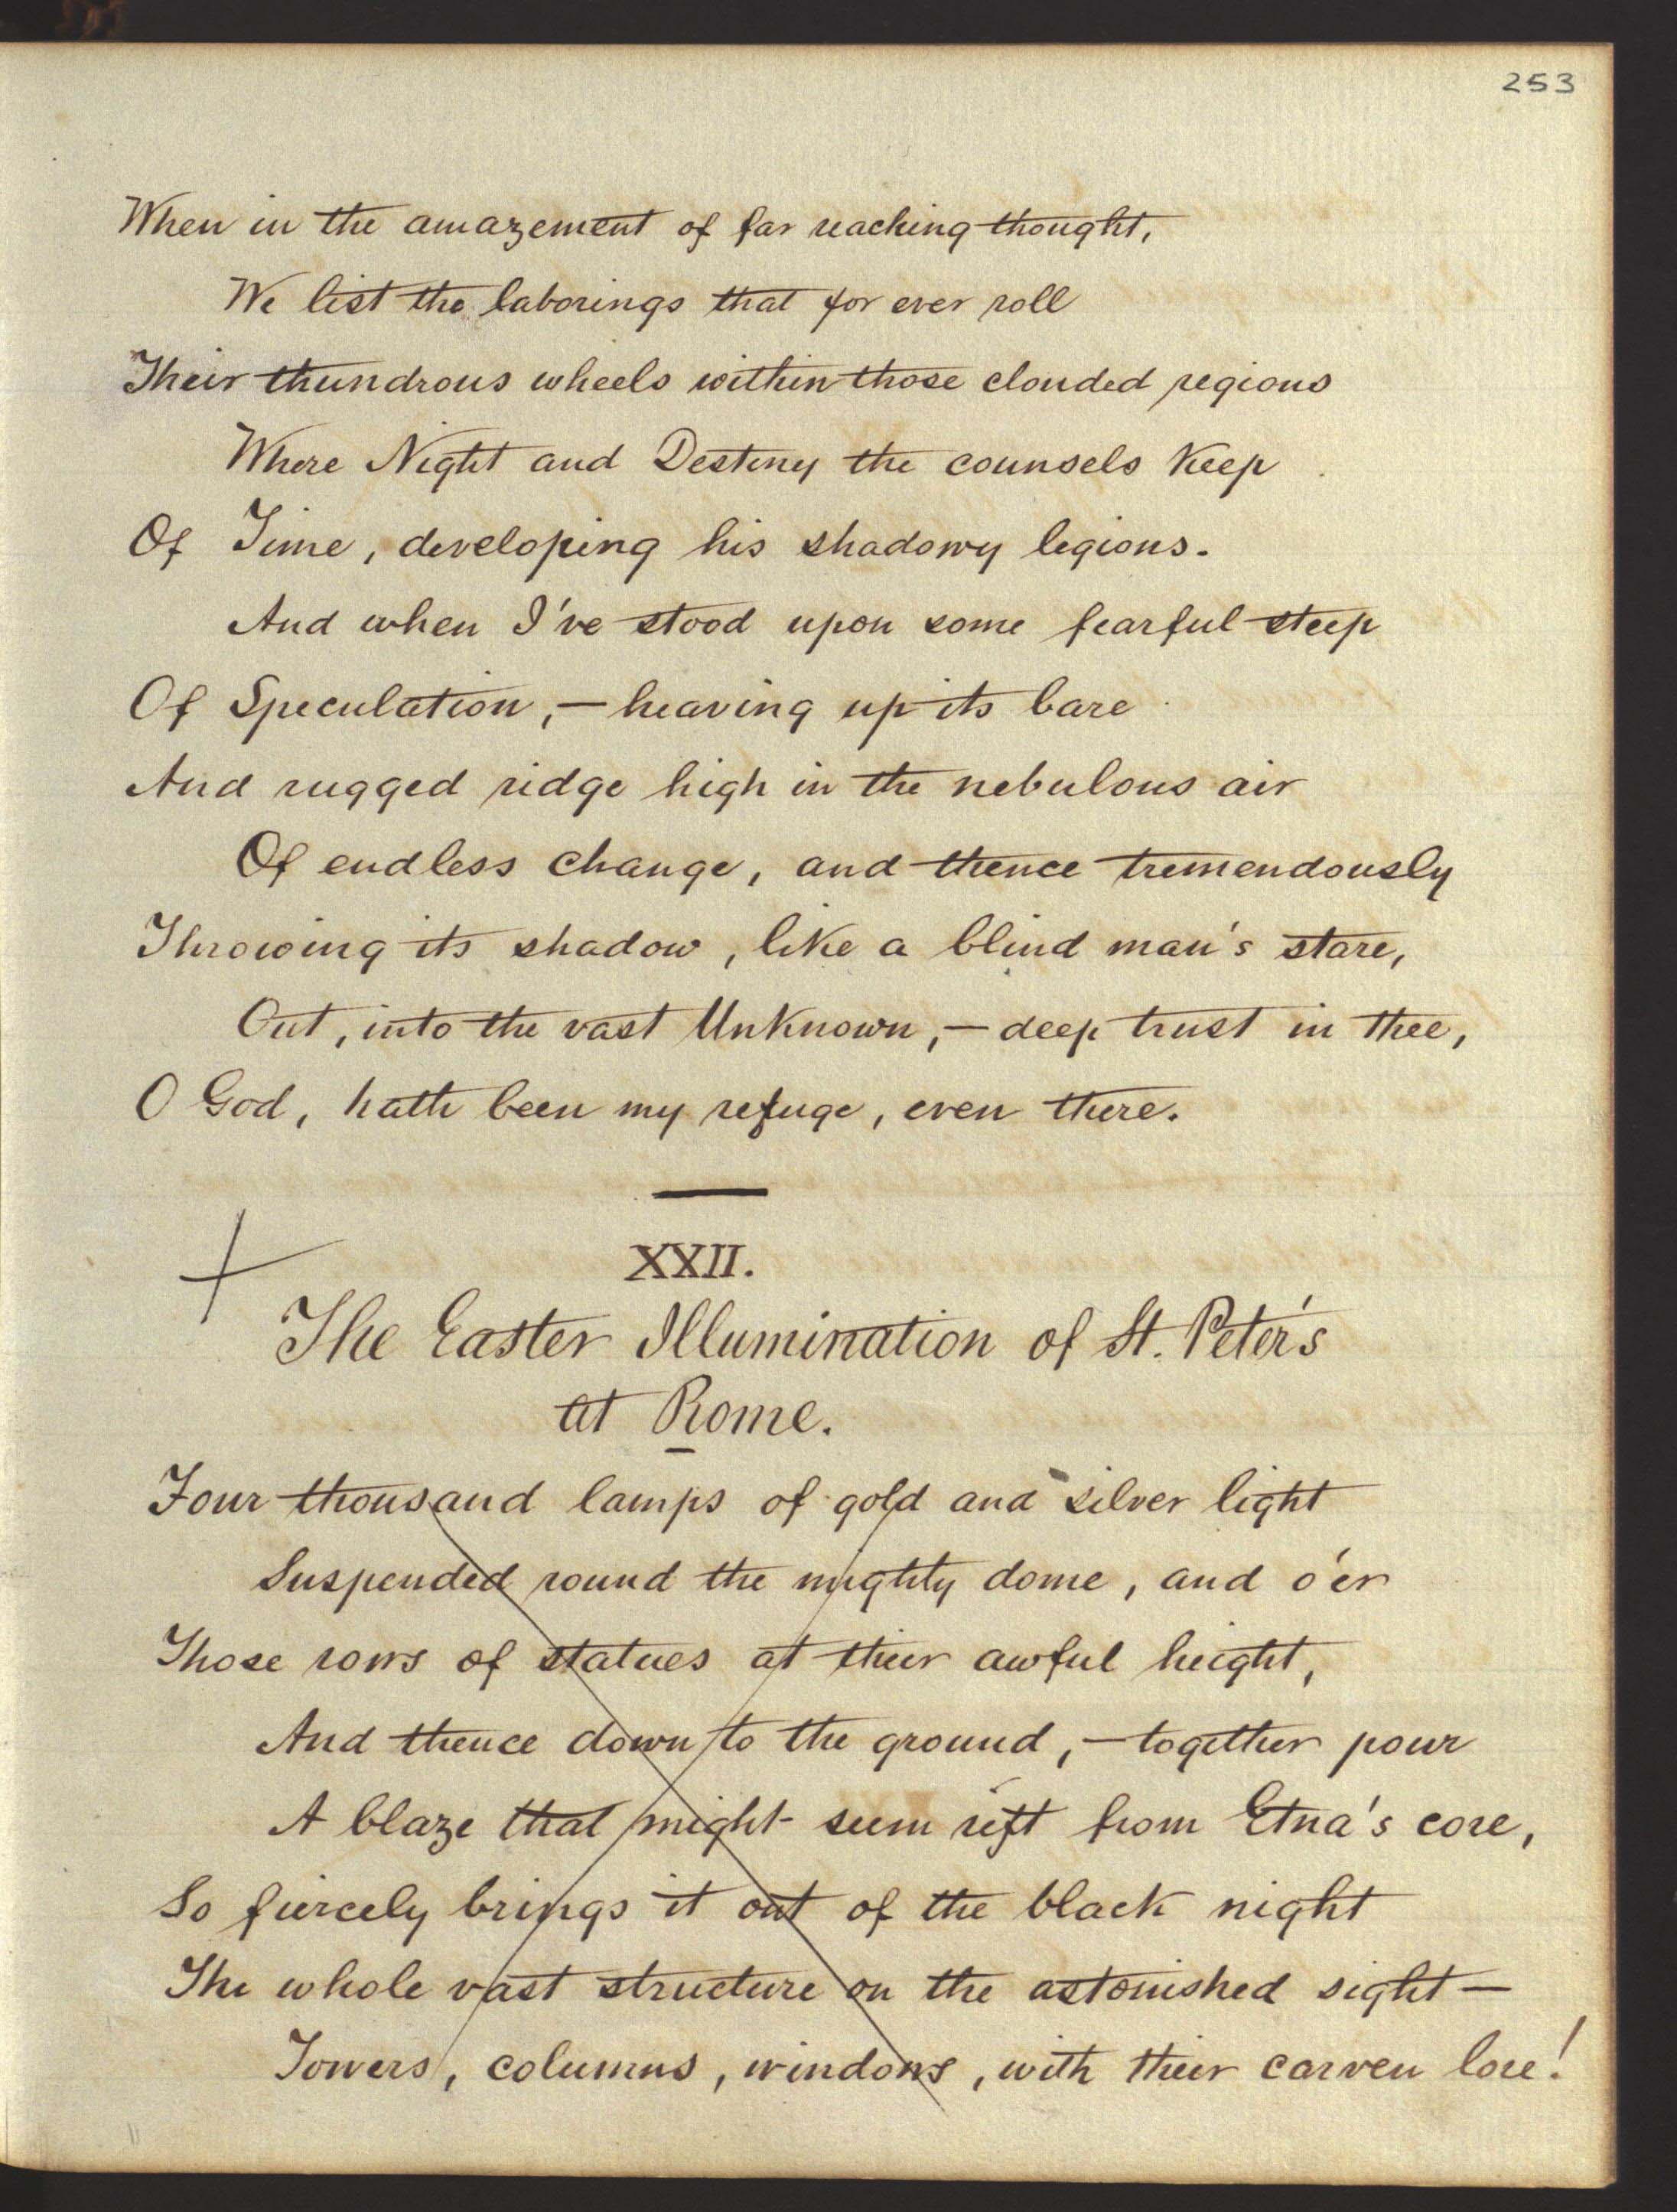 253
When in the amazement of far reaching thought,
We list the laborings that for ever roll
Their thundrous wheels within those clouded regions
Where Night and Destiny the counsels keep
Of Time, developing his shadowy legions.
And when I've stood upon some fearful steep
Of Speculation,—heaving up its bare
And rugged ridge high in the nebulous air
Of endless change, and thence tremendously
Throwing its shadow, like a blind man's stare,
Out, into the vast Unknown,—deep trust in thee,
O God, hath been my refuge, even there.
XXII.
The Easter Illumination of St. Peter's
at Rome.
Four thousand lamps of gold and silver light
Suspended round the mighty dome, and o'er
Those rows of statues at their awful height,
And thence down to the ground,—together pour
A blaze that might seem reft from Etna's core,
So fiercely brings it out of the black night
The whole vast structure on the astonished sight—
Towers, columns, windows, with their carven lore!